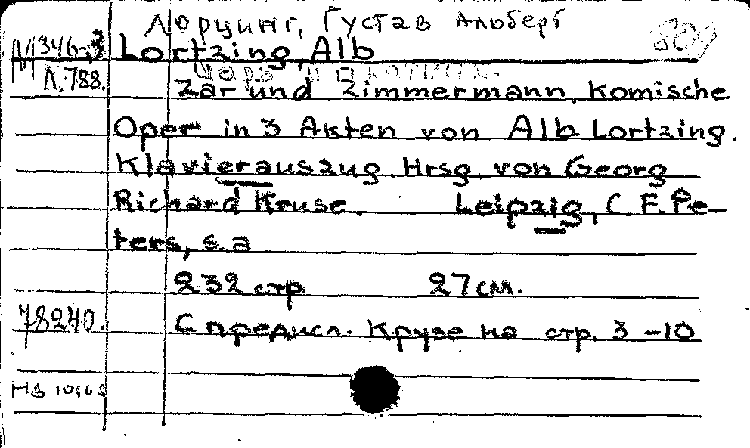 Лорцинг, Густав Альберт
М346-3 Lortzing, Alb
Л.788. Zar und Zimmermann, Komische
Oper in 3 Akten von Alb Lortzing.
Klavierauszug Hrsg. von Georg
Richard Kruse. Leipzig, C. F. Pe-
ters, s. a
232 стр 27 см.
78240. С предисл. Крузе на стр. 3-10